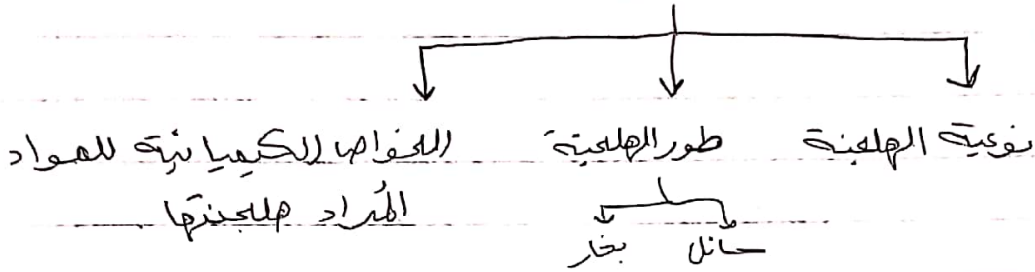 نوعية الهلجنة
طور الهلجنة
سائل
بخار
الخواص الكيميائية للمواد
المُراد هلجنتها